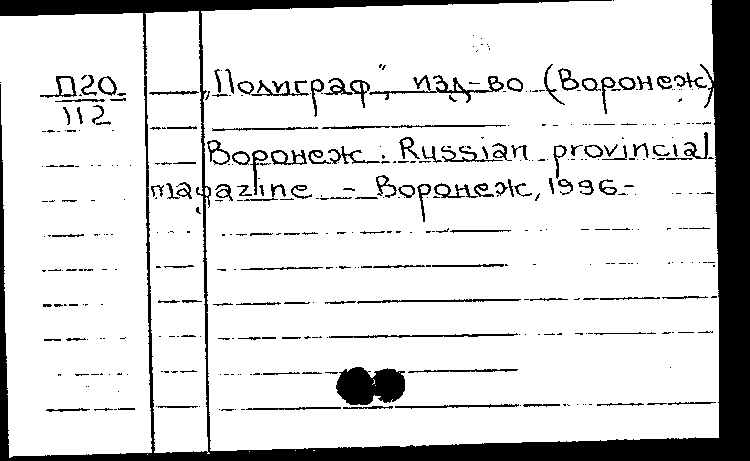 П20
112
„Полиграф“, изд-во (Воронеж)
Воронеж. Russian provincial
magazine - Воронеж, 1996-